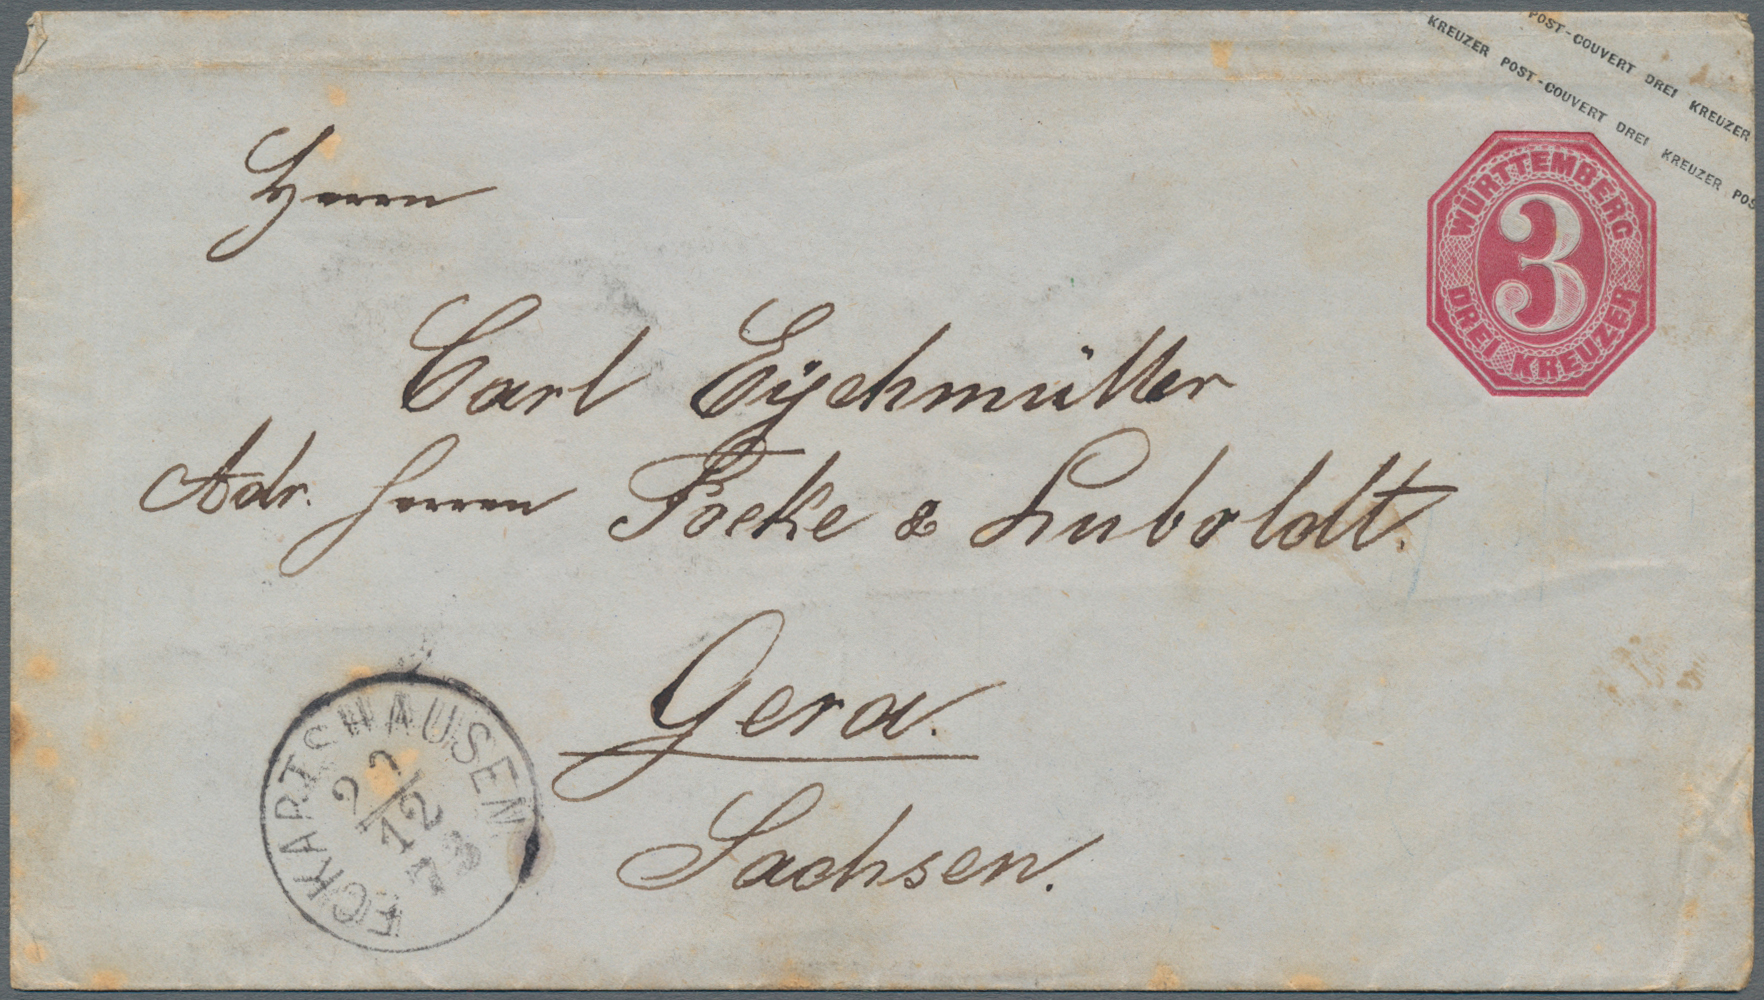 POST-COUVERT DREI KREUZER
KREUZER POST-COUVERT DREI KREUZER POS
WÜRTTEMBERG
3
DREI KREUZER
Herrn
Carl Eychmüller
Adr. Herren Focke & Luboldt.
Gera.
Sachsen.
ECKARTSHAUSEN
22
12
73